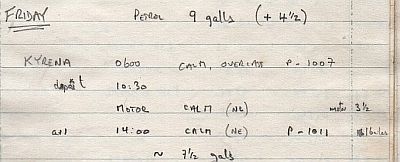 FRIDAY PETROL 9 galls (+ 4½)
KYRENA 0600 CALM, OVERCAST P-1007
depart 10:30
MOTOR CALM (NE) motor 3½
arr 14:00 CALM (NE) P-1011
~ 7½ gals